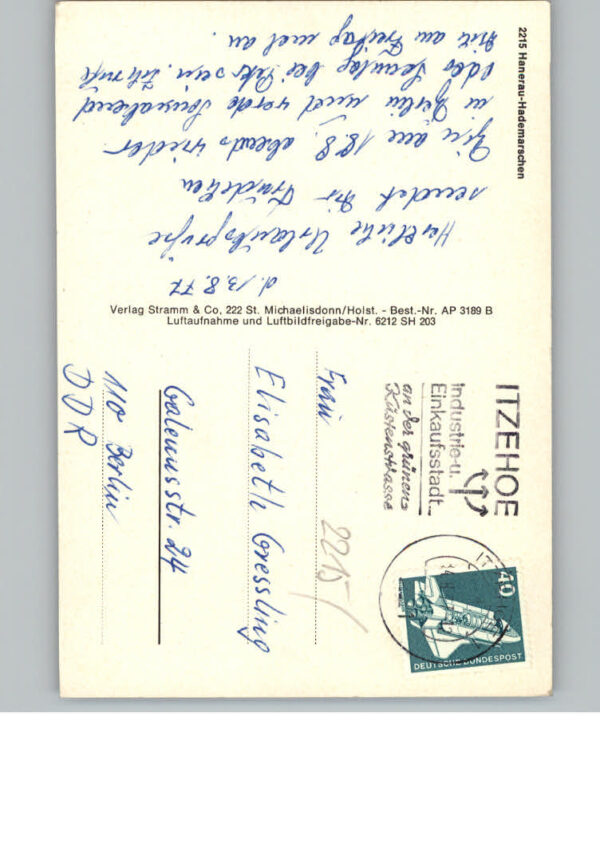 2215 Hanerau-Hademarschen
d. 13.8.77
Herzliche Urlaubsgrüße
sendet Dir
Bin am 18.8. abends wieder
in Berlin und werde Sonnabend
oder Sonntag bei sein. Ich rufe
Dich am Freitag mal an.
Verlag Stramm & Co, 222 St. Michaelisdonn/Holst. - Best.-Nr. AP 3189 B
Luftaufnahme und Luftbildfreigabe-Nr. 6212 SH 203
ITZEHOE
Industrie-u.
Einkaufsstadt
an der grünen
Küstenstrasse
40
DEUTSCHE BUNDESPOST
2215/
Frau
Elisabeth Gressling
Galenusstr. 24
110 Berlin
DDR